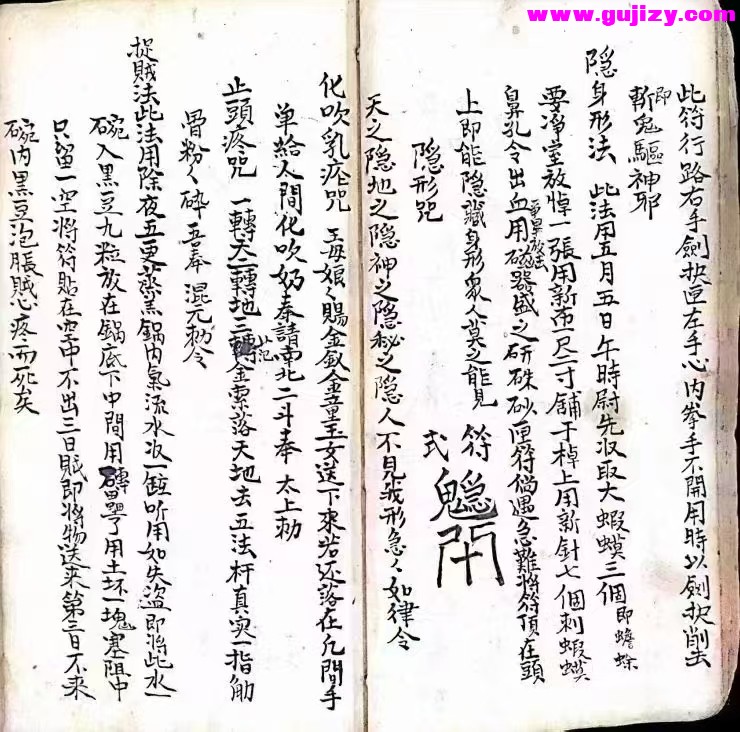 www.gujizy.com
此符行路右手劍抉匣左手心内拳手不開用時以劍抉削出
即斬鬼驅神邪
隐身形法 此法用五月五日午時尉先收取大蝦蟆三個即蟾蜍
要凈室放悼一張用新布一尺二寸舖于棹上用新针七個刺蝦蟆
鼻孔令出血用磁器盛之研硃砂匣符倘遇急難將符頂在頭
上即能隐藏身形衆人莫之能見 符式
隐形咒
天之隐地之隐神之隐秘之隐人不見我形急〻如律令
化吹乳疟咒 王母娘〻賜金釵金童玉女送下來若还落在凡間手
单給人間化吹奶奉請南北二斗奉 太上勅
止頭疼咒 一轉天二轉地三轉金索落天地去五法杆真实一指觔
骨粉〻碎吾奉 混元勅令
捉賊法此法用除夜五更蒸黑鍋内氣流水收一鍾听用如失盜即將此水一
碗入黑豆九粒放在鍋底下中間用磚罩了用土坯一塊塞阻中
只留一空將符貼在空中不出三日賊即將物送来第三日不来
碗内黑豆泡脹賊心疼而死矣